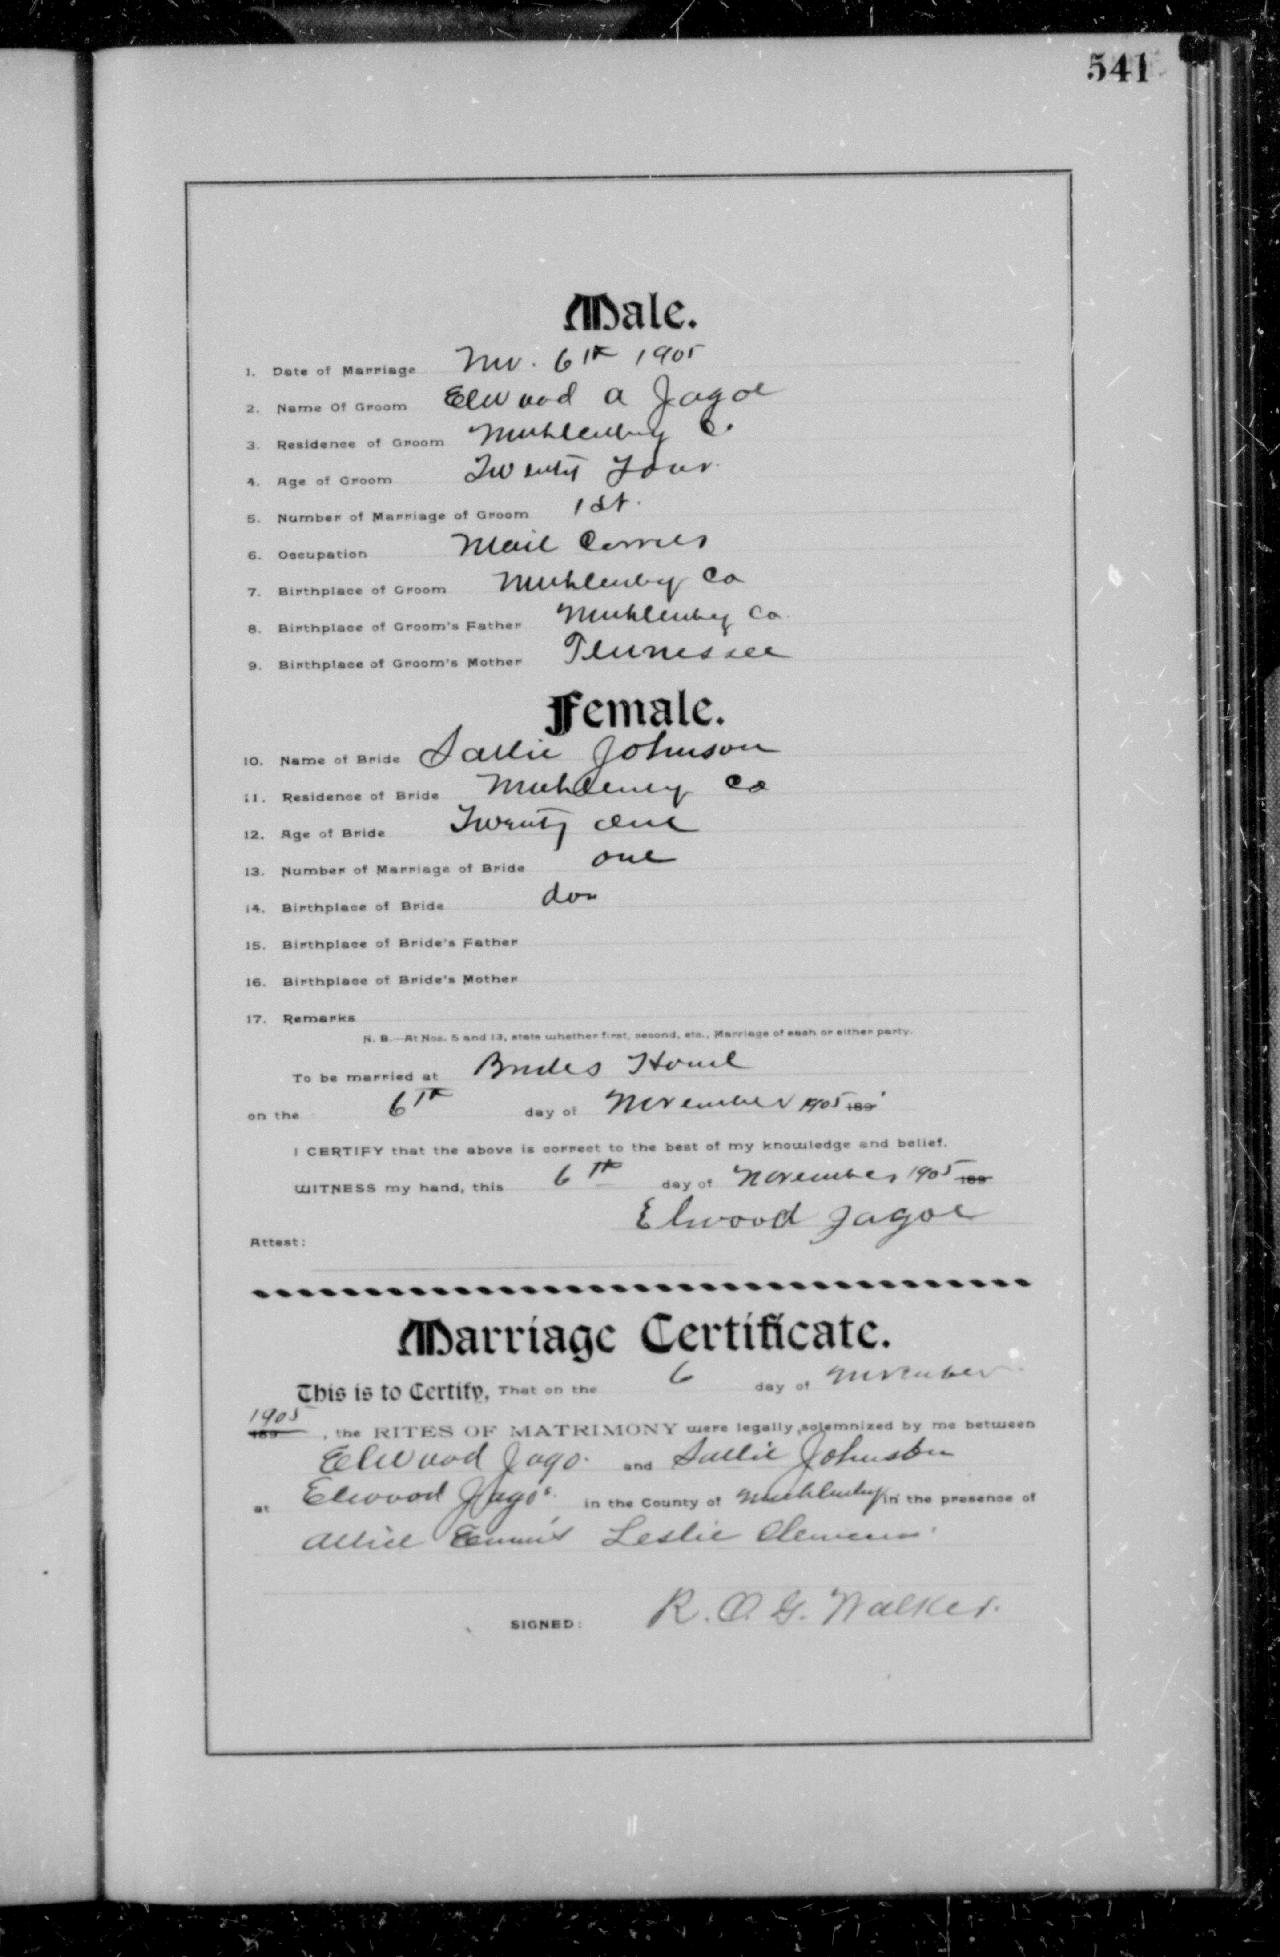 541
Male.
1. Date of Marriage Nov. 6th 1905
2. Name Of Groom Elwood A Jagoe
3. Residence of Groom Muhlenberg Co.
4. Age of Groom Twenty Four
5. Number of Marriage of Groom 1st.
6. Occupation Mail Carrier
7. Birthplace of Groom Muhlenberg Co
8. Birthplace of Groom's Father Muhlenberg Co.
9. Birthplace of Groom's Mother Tennessee
Female.
10. Name of Bride Sallie Johnson
11. Residence of Bride Muhlenberg Co
12. Age of Bride Twenty One
13. Number of Marriage of Bride one
14. Birthplace of Bride
15. Birthplace of Bride's Father
16. Birthplace of Bride's Mother
17. Remarks
N. B.—At Nos. 5 and 13, state whether first, second, etc., Marriage of each or either party.
To be married at Brides Home
on the 6th day of November 1905 189
I CERTIFY that the above is correct to the best of my knowledge and belief.
WITNESS my hand, this 6th day of November 1905 189
Elwood Jagoe
Attest:
Marriage Certificate.
This is to Certify, That on the 6 day of November
1905
189 , the RITES OF MATRIMONY were legally solemnized by me between
Elwood Jago and Sallie Johnson
at Elwood Jago's in the County of Muhlenberg in the presence of
Allice Leslie Clemens
SIGNED: R. O. G. Walker.